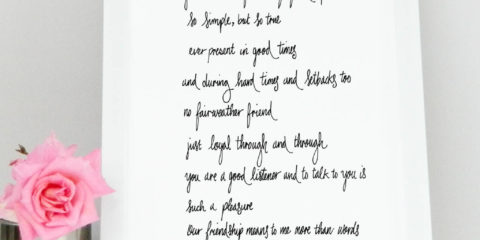 so simple, but so true
ever present in good times
and during hard times and setbacks too
no fairweather friend
just loyal through and through
you are a good listener and to talk to you is
such a pleasure
Our friendship means to me more than words